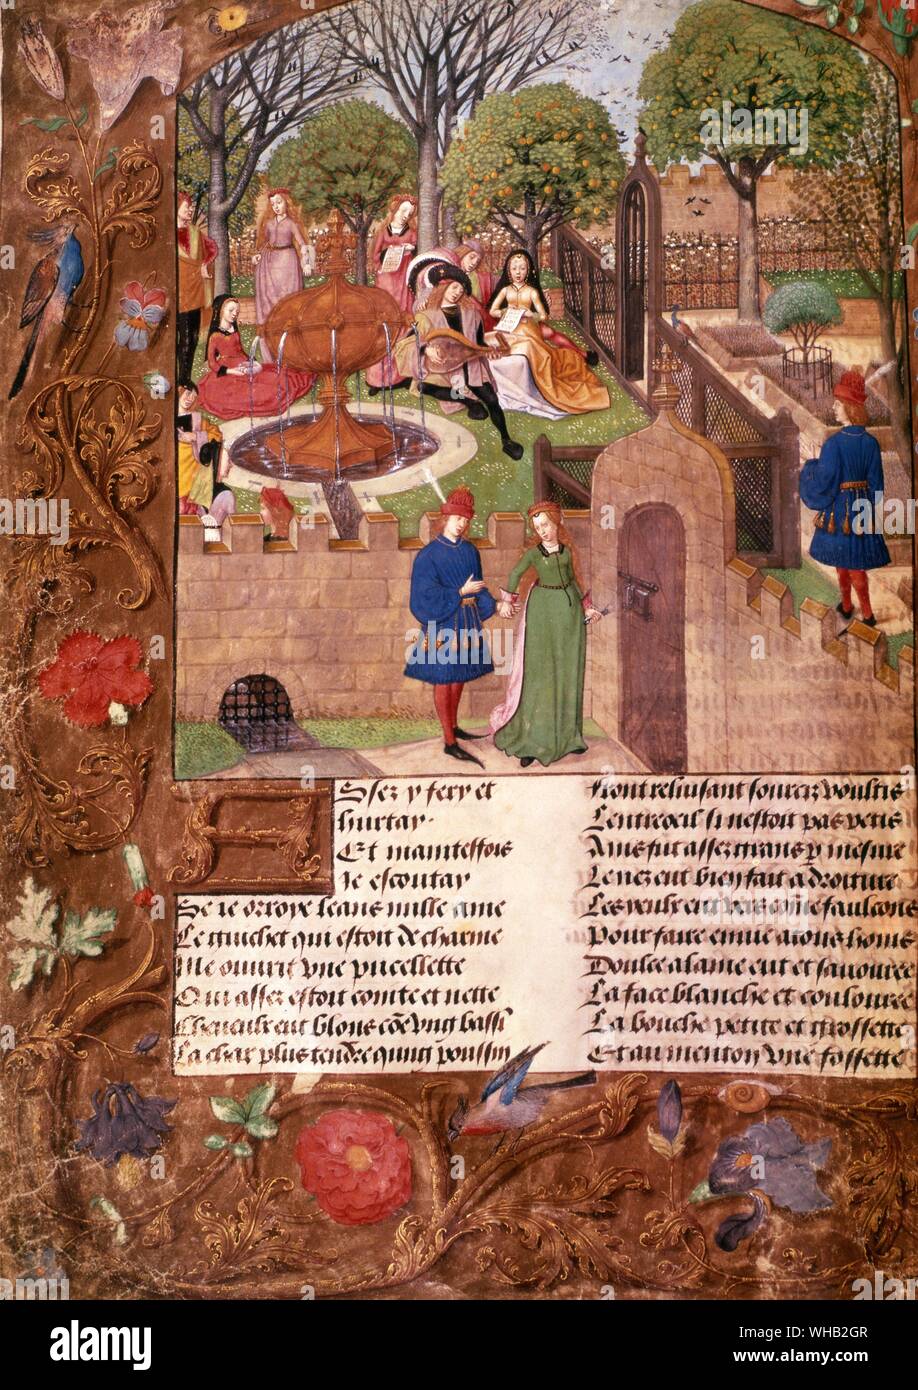 Assez y fery et
hurtay.
Et maintesfois
Je escoutay
Se ie orroye leans nulle ame
Le guichet qui estoit de charme
Me ouurit vne pucellette
Qui assez estoit cointe et nette
Cheueulx eut blons cõe vng bassĩ
La char plus tendre qung poussin
Front reluisant sourcilz voultis
Lentreoeil si nestoit pas petis
Ains fut assez grans p mesure
Le nez eut bien fait a droiture
Les yeulx eut vers cõme faulcons
Pour faire enuie a ions homs
Doulce alaine eut et sauouree
La face blanche et coulouree
La bouche petite et grossette
Et au menton vne fossette
alamy
Image ID: WHB2GR
www.alamy.com